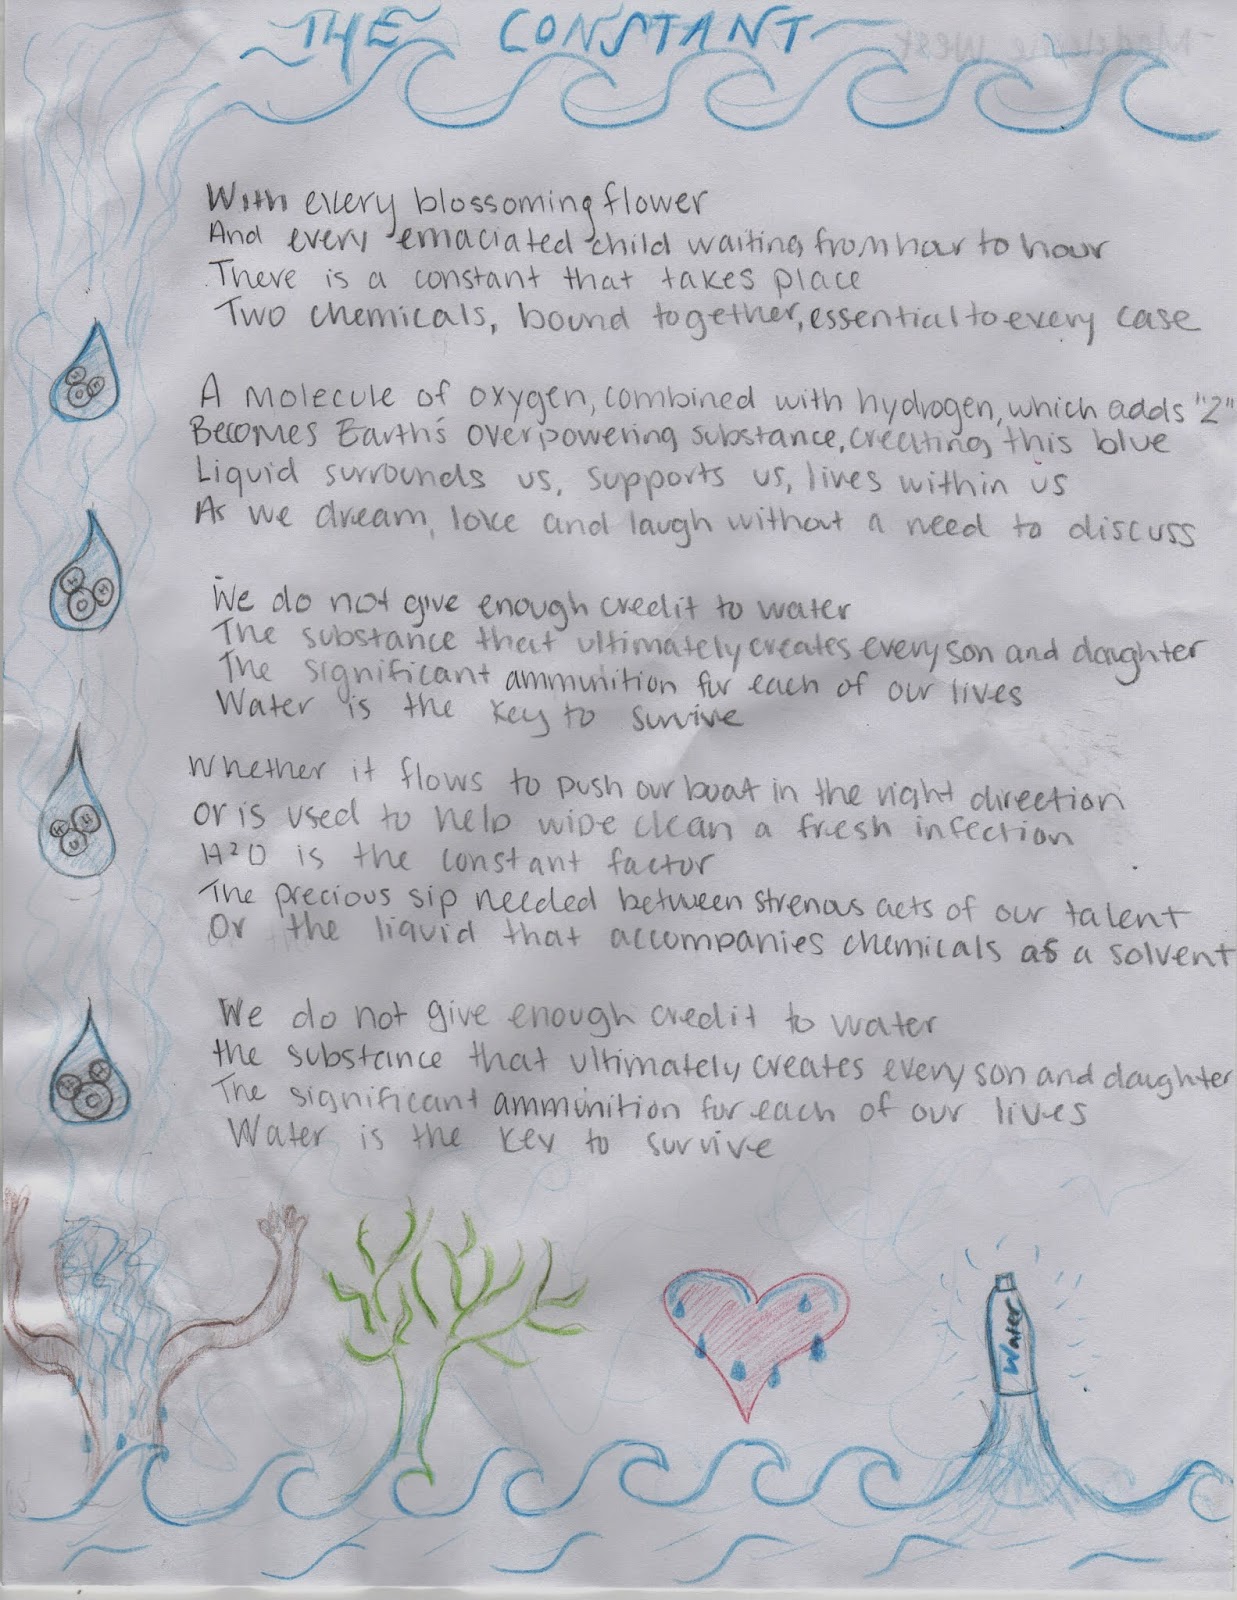 THE CONSTANT
With every blossoming flower
And every emaciated child waiting from hour to hour
There is a constant that takes place
Two chemicals, bound together, essential to every case
A molecule of oxygen, combined with hydrogen, which adds "2"
Becomes Earth's overpowering substance, creating this blue
Liquid surrounds us, supports us, lives within us
As we dream, love and laugh without a need to discuss
We do not give enough credit to water
The substance that ultimately creates every son and daughter
The significant ammunition for each of our lives
Water is the key to survive
Whether it flows to push our boat in the right direction
Or is used to help wipe clean a fresh infection
H2O is the constant factor
The precious sip needed between strenous acts of our talent
Or the liquid that accompanies chemicals as a solvent
We do not give enough credit to water
the substance that ultimately creates every son and daughter
The significant ammunition for each of our lives
Water is the key to survive
H H O
H H O
H H O
H H O
Water